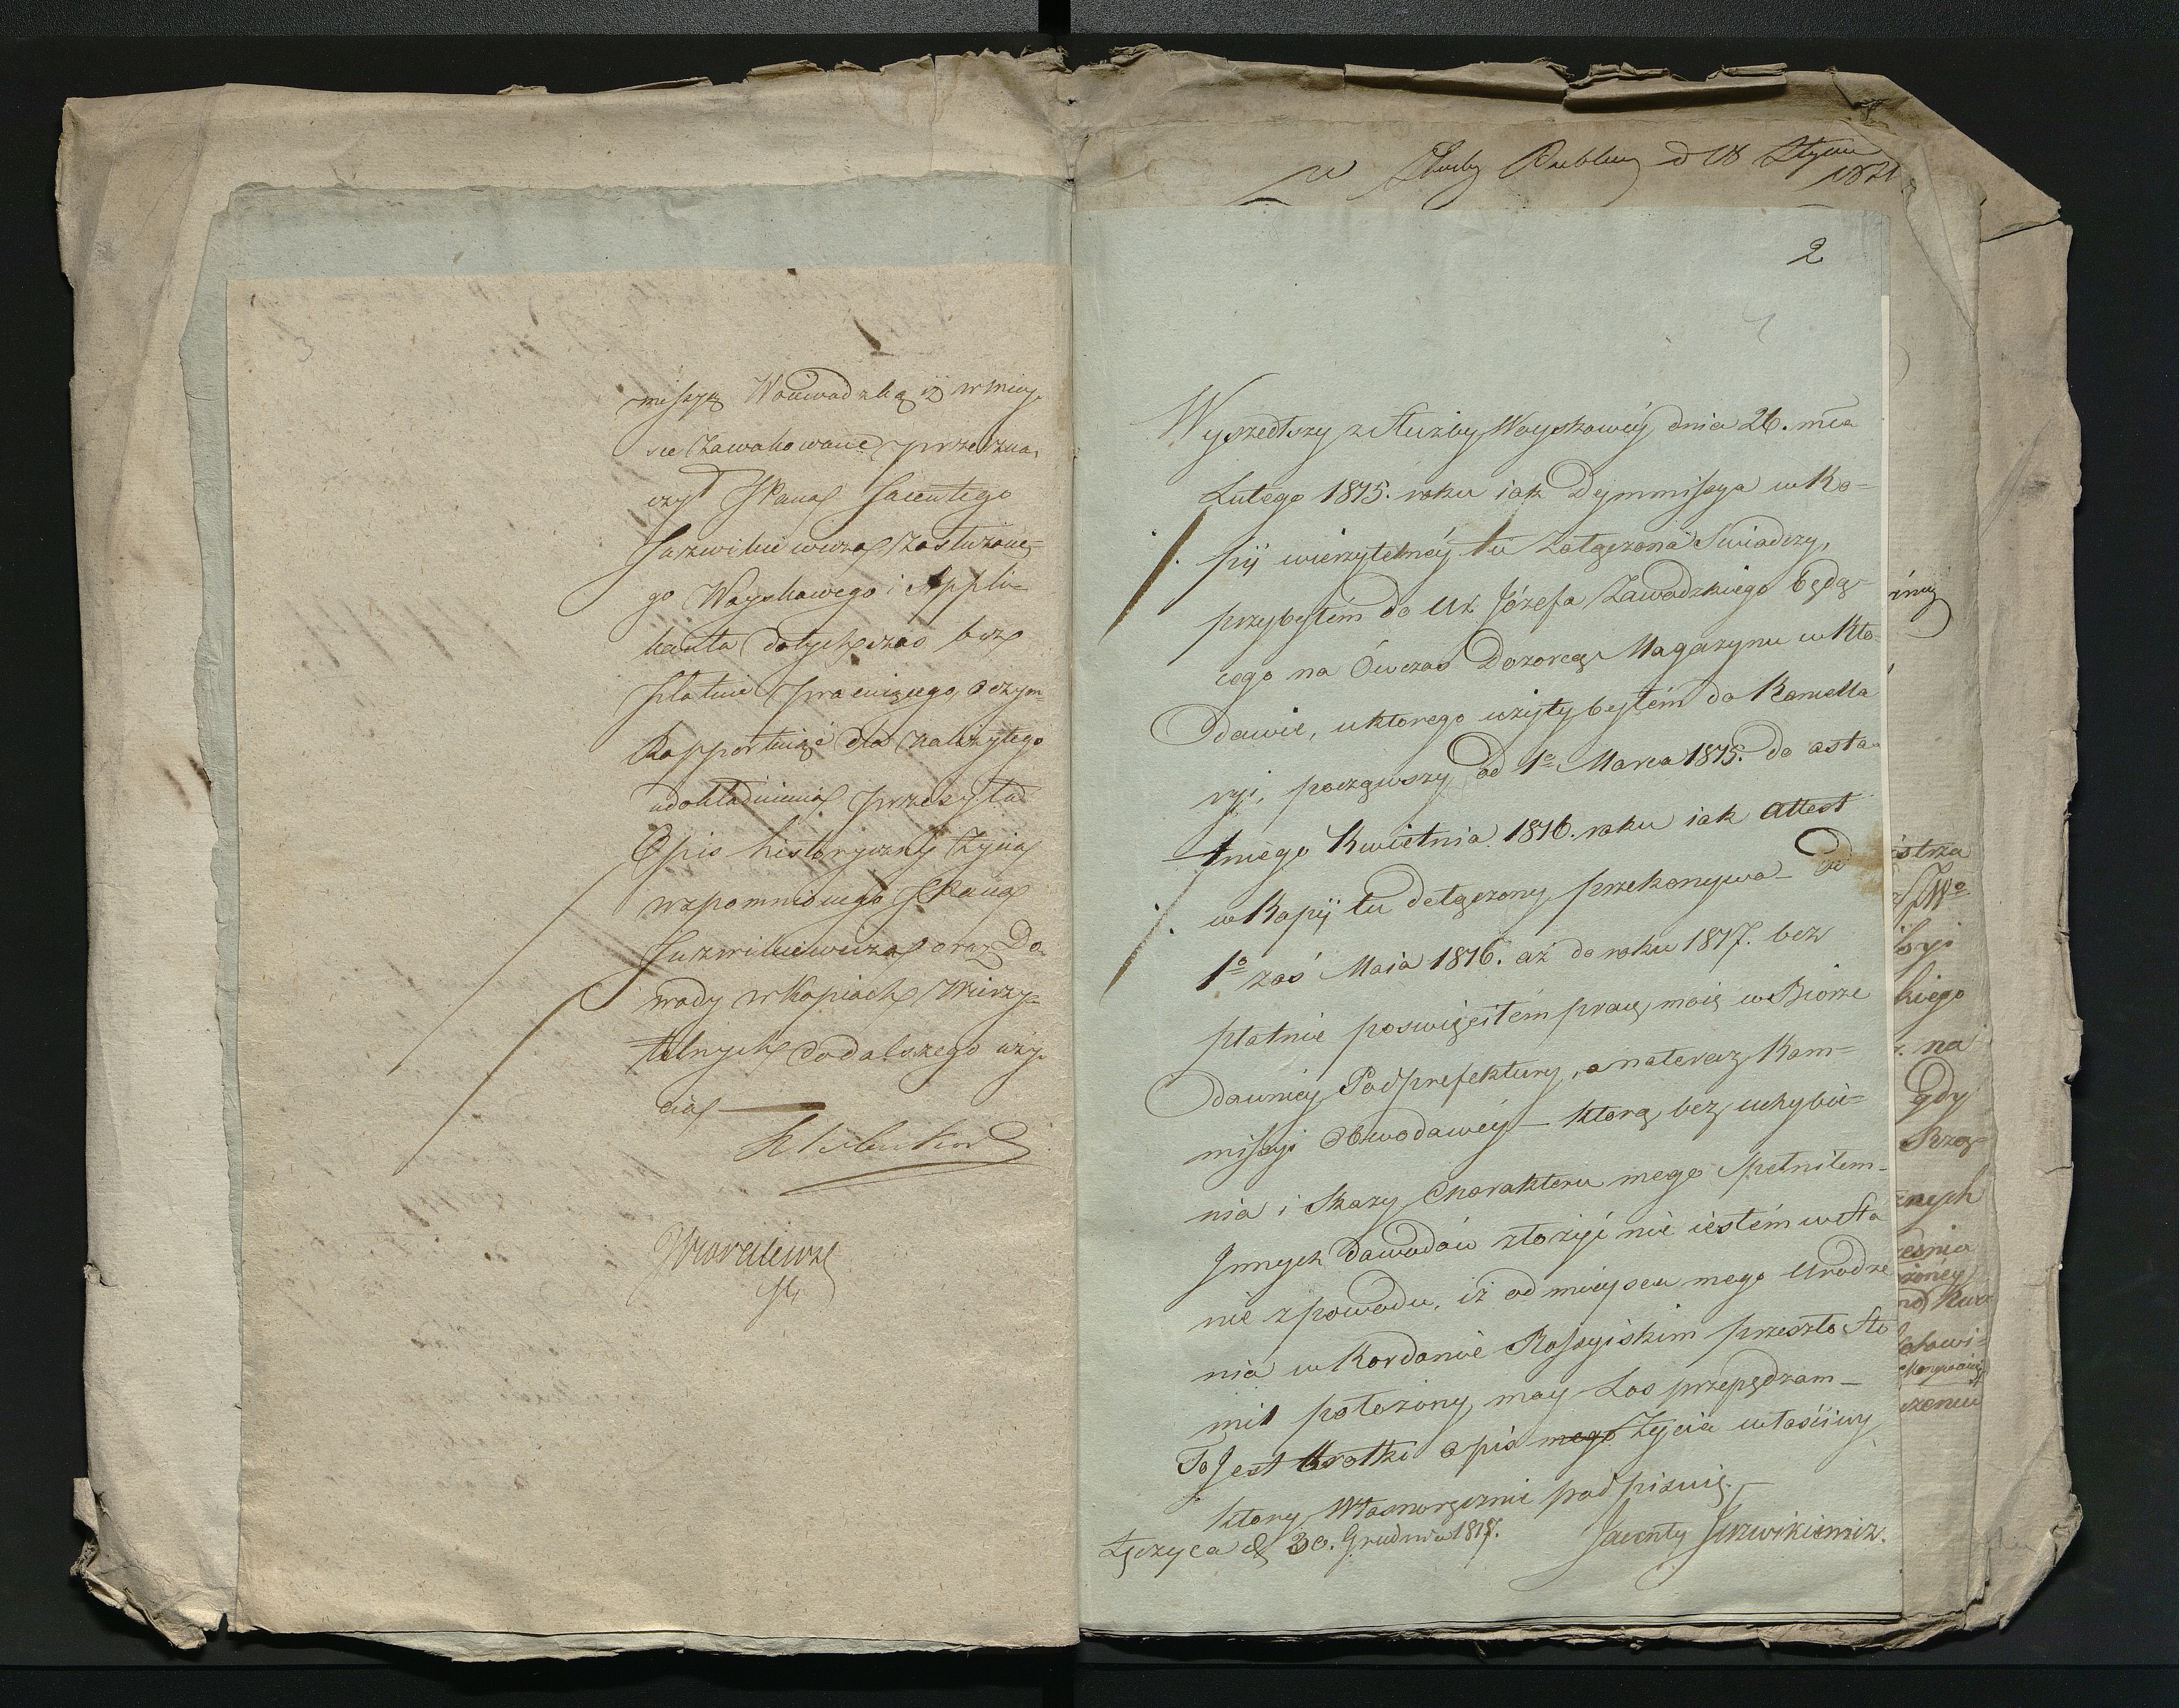 missyą Woiewodzką iż w miey-
sce zawakowane przezna-
czył JPana Jacentego
Juzwikiewicza zasłużone-
go Woyskowego i Appli-
kanta dotychczas bez
płatnie pracuiącego, o czym
Rapportuiąc dla należytego
udokładnienia przesyła
Opis historyczny życia
wspomnionego JPana
Juzwikiewicza oraz Do-
wody w Kopiach Wierzy-
telnych do dalszego uży-
cia
d 18 Stycznia
1821
2
Wyszedłszy z służby Woyskowéy dnia 26. mca
Lutego 1815. roku iak Dymmissya w Ko-
pij wierzytelnéy tu załączona Swiadczy,
przybyłem do Ur Józefa Zawadzkiego będą-
cego na Ówczas Dozorcą Magazynu w Kło
dawie, u ktorego użyty byłem do Kancella
ryi, począwszy od 1o Marca 1815. do osta-
tniego Kwietnia 1816. roku iak Attest
w Kopij tu dołączony przekonywa – Od
1o zaś Maia 1816. aż do roku 1817. bez
płatnie poswięciłem pracę moię w Biorze
dawnéy Podprefektury, a na teraz Kom-
missyi Obwodowéy – ktorą bez uchybie-
nia i skazy Charakteru mego spełniłem –
Innych dowodów złożyć nie iestem w sta
nie z powodu, iż od mieysca mego Urodze
nia w Kordonie Rossyiskim przeszło sto
mil położony, moy Los przepędzam –
To Jest krotki opis mego życia własciwy
ktory Własnoręcznie podpisuię. –
Łęczyca d 30. Grudnia 1817. Jacenty Juzwikiewicz.